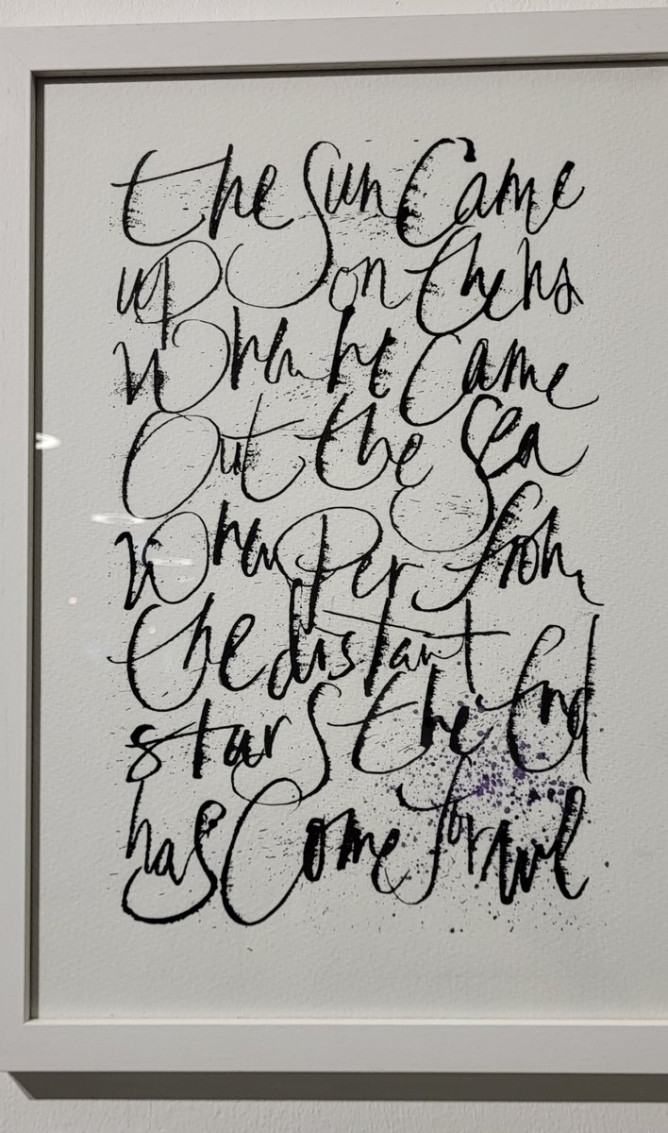 the sun came
up on the
when he came
out the sea
when her from
the distant
stars the end
has come for